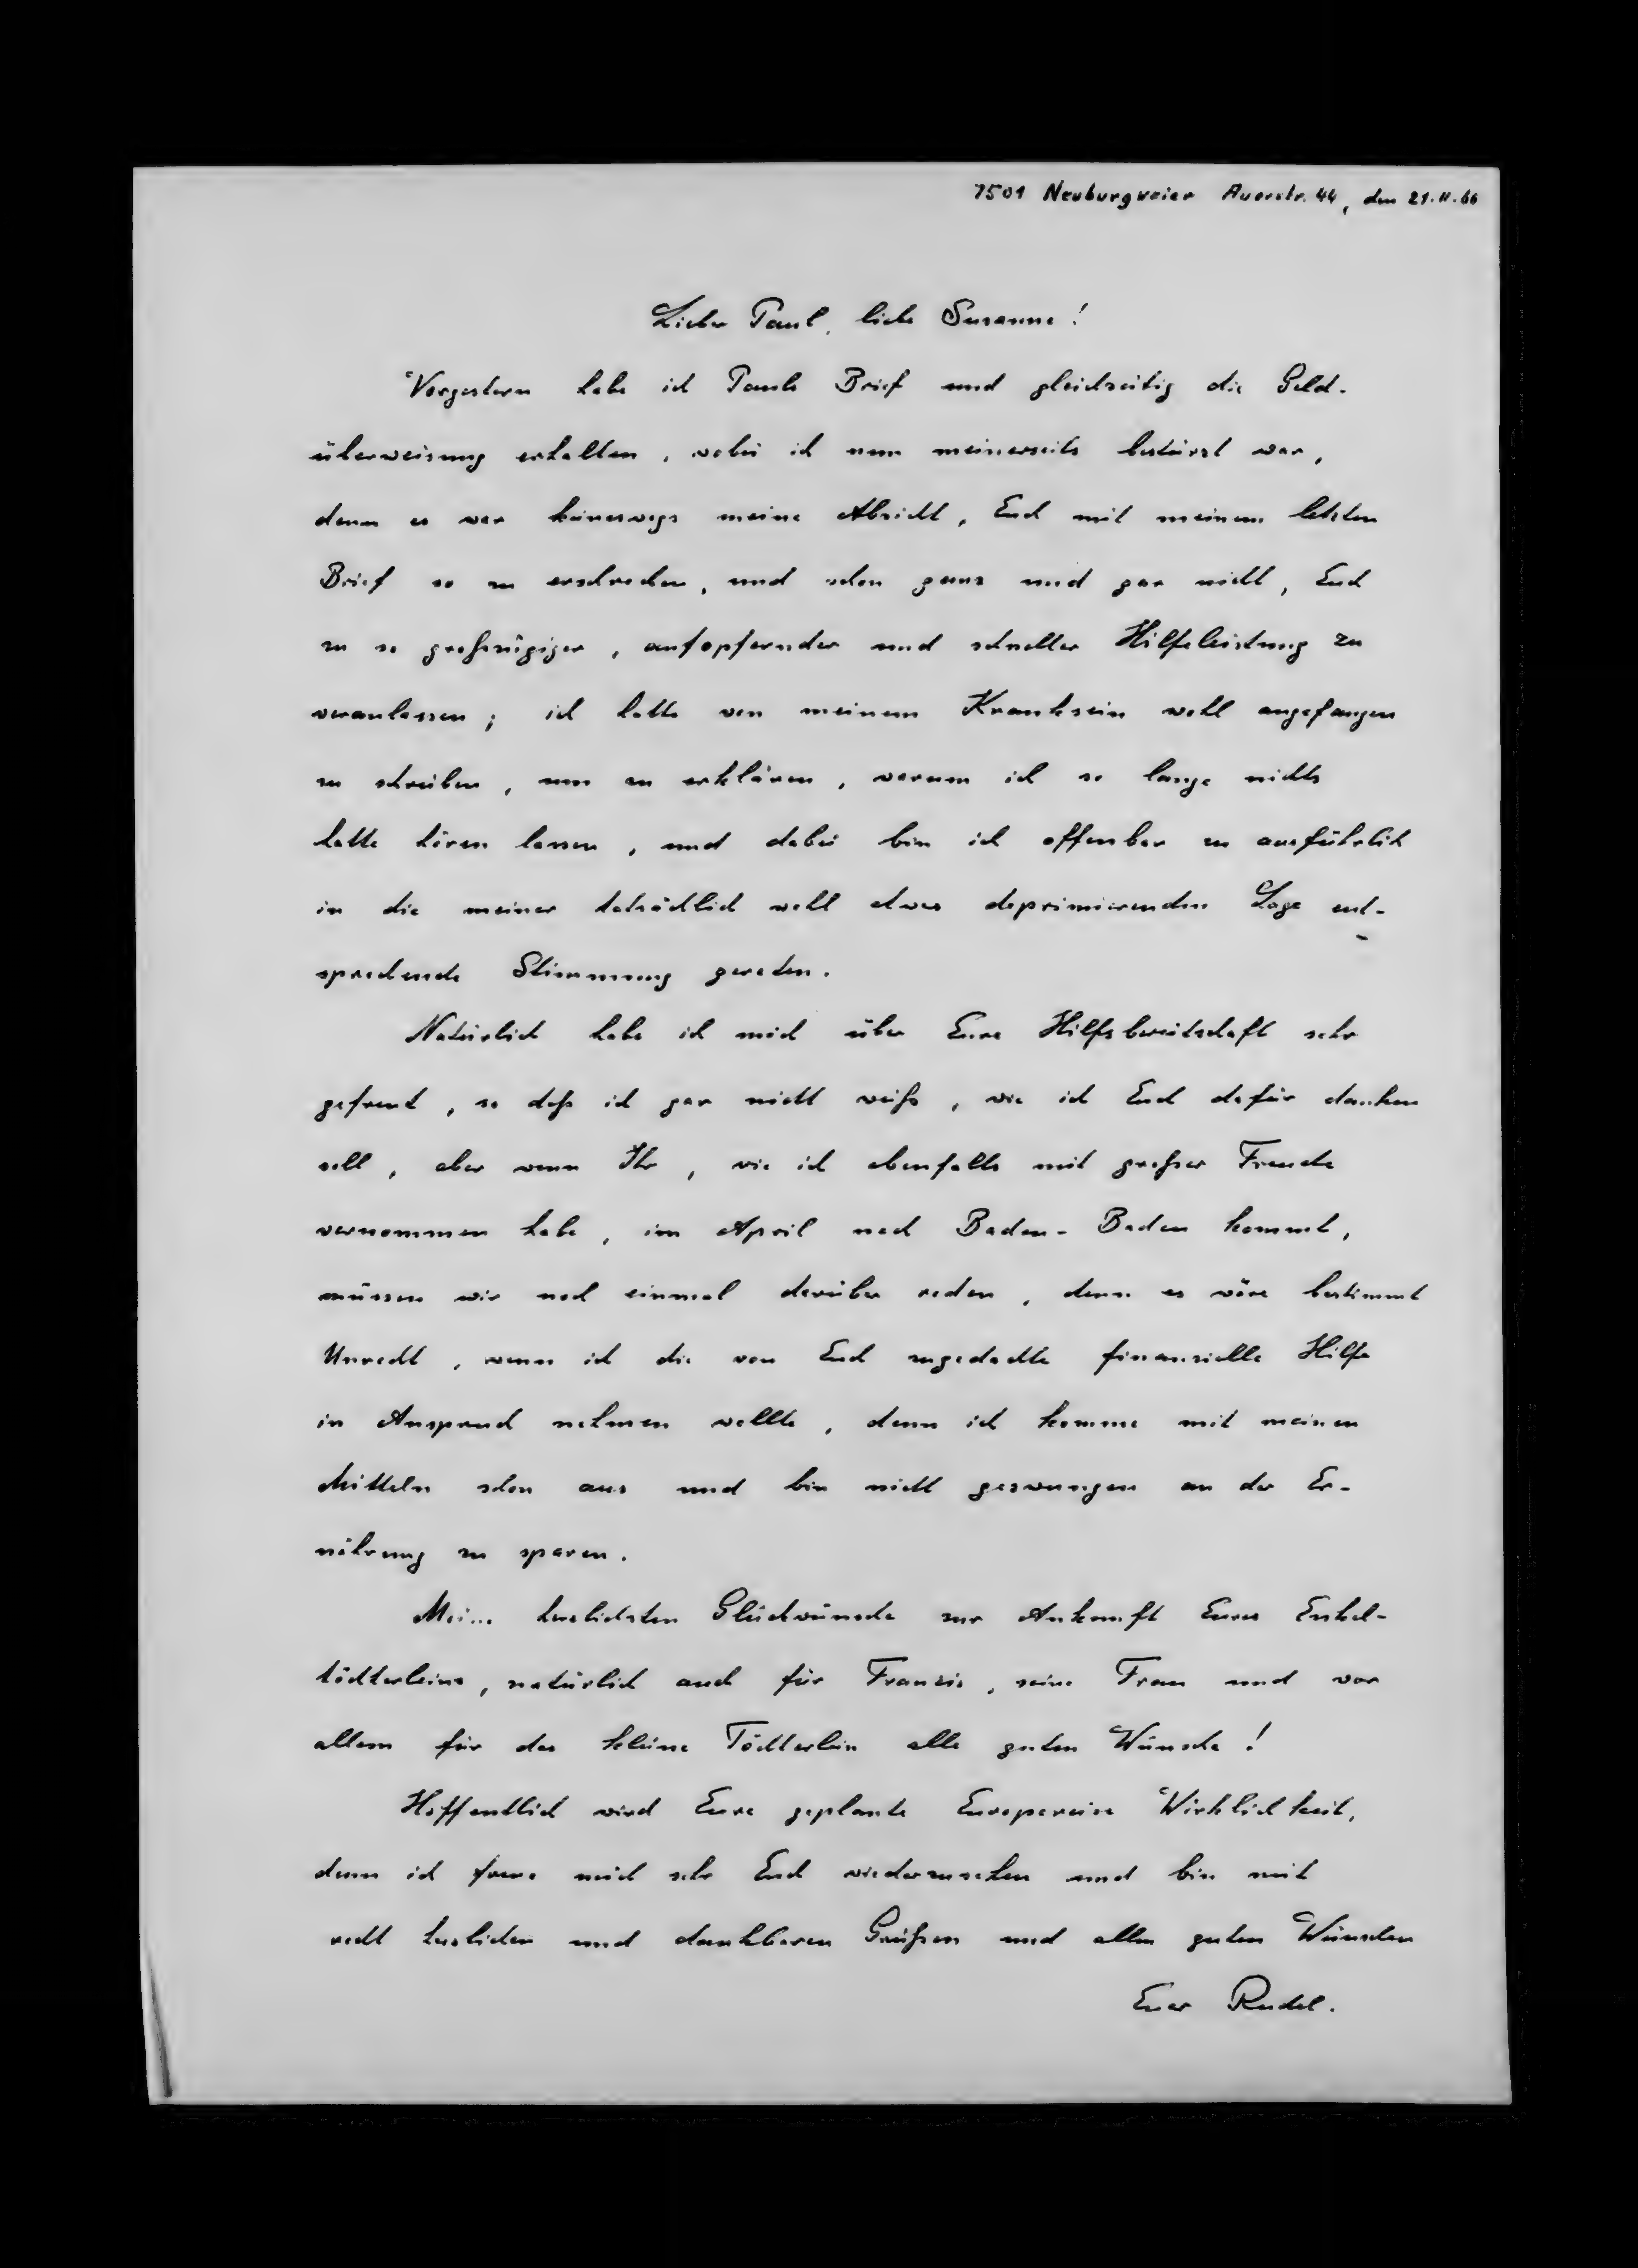 7501 Neuburgweier Auerstr. 44, den 21.II.66
Lieber Paul, liebe Susanne!
Vorgestern habe ich Pauls Brief und gleichzeitig die Geld-
überweisung erhalten, wobei ich nun meinerseits bestürzt war,
denn es war keineswegs meine Absicht, Euch mit meinem letzten
Brief so zu erschrecken, und schon ganz und gar nicht, Euch
zu so großzügiger, aufopfernder und schneller Hilfeleistung zu
veranlassen; ich hatte von meinem Kranksein wohl angefangen
zu schreiben, um zu erklären, warum ich so lange nichts
hatte hören lassen, und dabei bin ich offenbar zu ausführlich
in die meiner tatsächlich wohl etwas deprimierenden Lage ent-
sprechende Stimmung geraten.
Natürlich habe ich mich über Eure Hilfsbereitschaft sehr
gefreut, so daß ich gar nicht weiß, wie ich Euch dafür danken
soll, aber wenn Ihr, wie ich ebenfalls mit großer Freude
vernommen habe, im April nach Baden-Baden kommt,
müssen wir noch einmal darüber reden, denn es wäre bestimmt
Unrecht, wenn ich die von Euch zugedachte finanzielle Hilfe
in Anspruch nehmen wollte, denn ich komme mit meinen
Mitteln schon aus und bin nicht gezwungen an der Er-
nährung zu sparen.
Meine herzlichsten Glückwünsche zur Ankunft Eures Enkel-
töchterleins, natürlich auch für Francis, seine Frau und vor
allem für das kleine Töchterlein alle guten Wünsche!
Hoffentlich wird Eure geplante Europareise Wirklichkeit,
denn ich freue mich sehr Euch wiederzusehen und bin mit
recht herzlichen und dankbaren Grüßen und allen guten Wünschen
Euer Rudel.